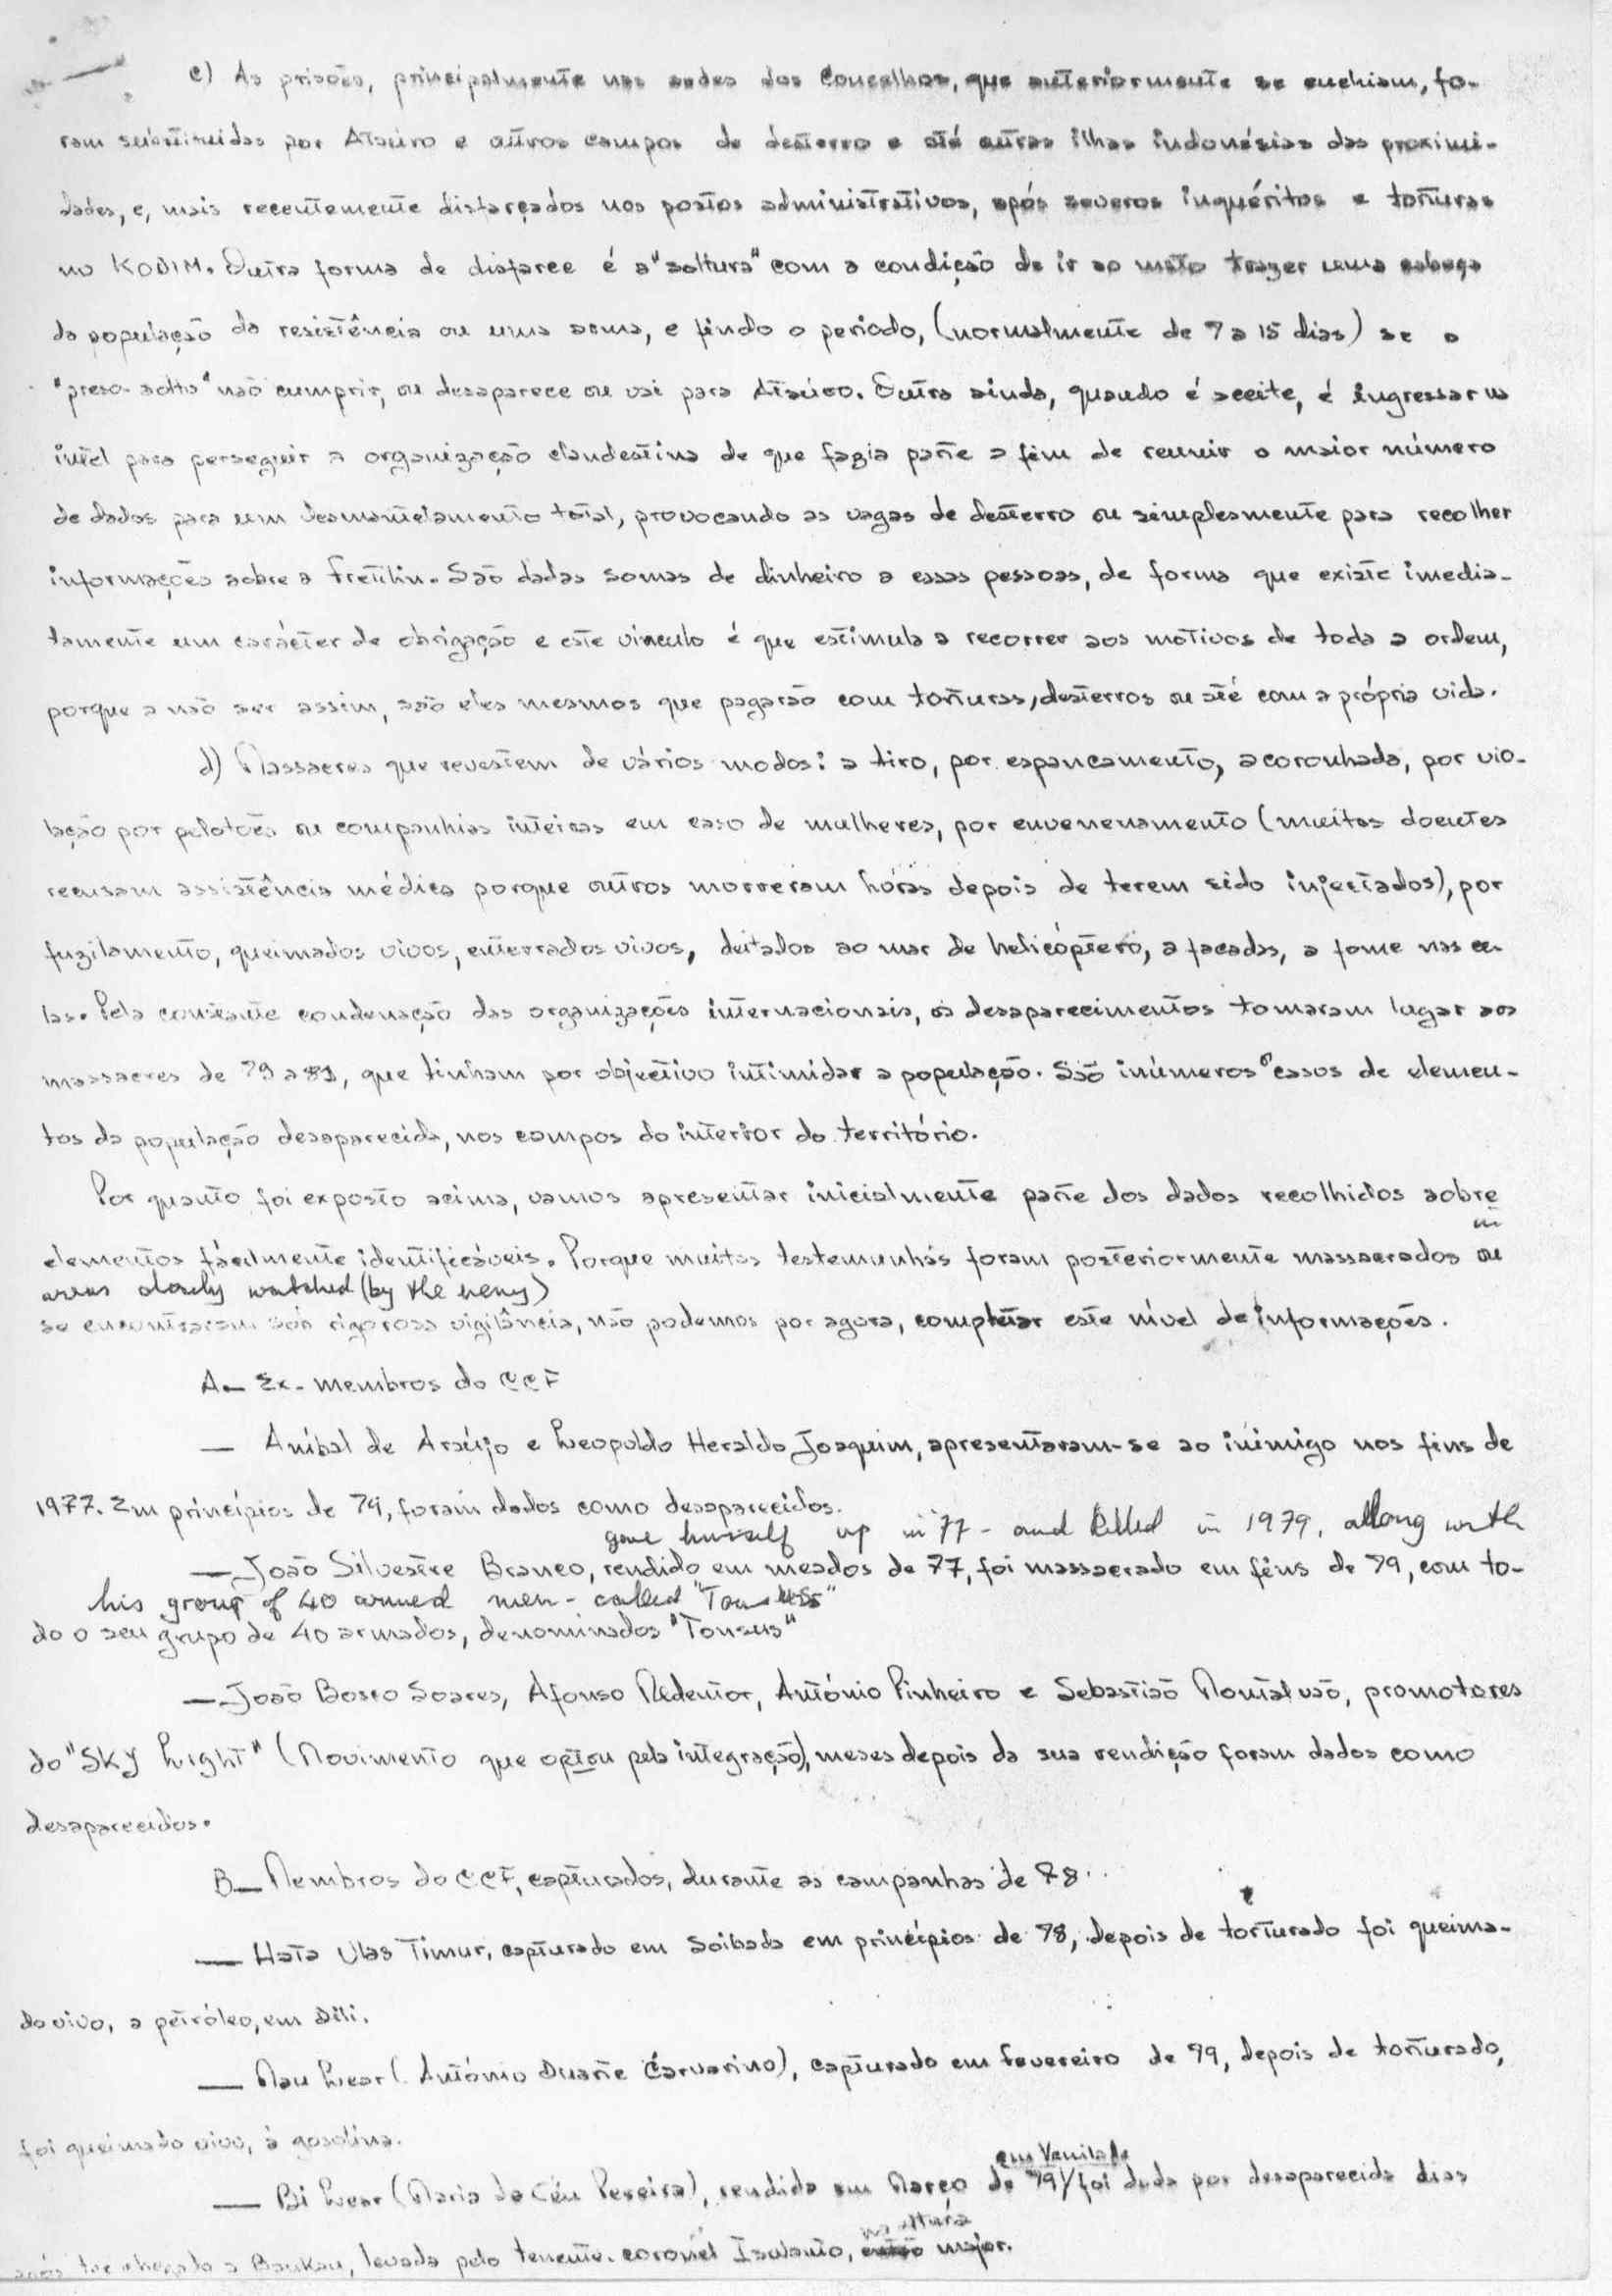 c) As prisões, principalmente nas sedes dos Concelhos, que anteriormente se enchiam, fo-
ram substituidas por Ataúro e outros campos de desterro e até outras ilhas indonésias das proximi-
dades, e, mais recentemente disfarçados nos postos administrativos, após severos inquéritos e torturas
no KODIM. Outra forma de disfarce é a "soltura" com a condição de ir ao mato trazer uma cabeça
da população da resistência ou uma arma, e findo o período, (normalmente de 7 a 15 dias) se o
"preso-solto" não cumprir, ou desaparece ou vai para Ataúro. Outra ainda, quando é aceite, é ingressar na
intel para perseguir a organização clandestina de que fazia parte a fim de reunir o maior número
de dados para um desmantelamento total, provocando as vagas de desterro ou simplesmente para recolher
informações sobre a Fretilin. São dadas somas de dinheiro a essas pessoas, de forma que existe imedia-
tamente um carácter de obrigação e este vinculo é que estimula a recorrer aos motivos de toda a ordem,
porque a não ser assim, são eles mesmos que pagarão com torturas, desterros ou até com a própria vida.
d) Massacres que revestem de vários modos: a tiro, por espancamento, a coronhada, por vio-
lação por pelotões ou companhias inteiras em caso de mulheres, por envenenamento (muitos doentes
recusam assistência médica porque outros morreram horas depois de terem sido injectados), por
fuzilamento, queimados vivos, enterrados vivos, deitados ao mar de helicóptero, a facadas, a fome nas ce-
las. Pela constante condenação das organizações internacionais, os desaparecimentos tomaram lugar aos
massacres de 79 a 81, que tinham por objectivo intimidar a população. São inúmeros os casos de elemen-
tos da população desaparecida, nos campos do interior do território.
Por quanto foi exposto acima, vamos apresentar inicialmente parte dos dados recolhidos sobre
in
elementos fácilmente identificáveis. Porque muitas testemunhas foram posteriormente massacrados ou
areas closely watched (by the enemy)
se encontraram sob rigorosa vigilância, não podemos por agora, completar este nível de informações.
A - Ex-membros do CCF
— Aníbal de Araújo e Leopoldo Heraldo Joaquim, apresentaram-se ao inimigo nos fins de
1977. Em princípios de 79, foram dados como desaparecidos.
gave himself up in '77 - and killed in 1979, along with
— João Silvestre Branco, rendido em meados de 77, foi massacrado em fins de 79, com to-
his group of 40 armed men - called
do o seu grupo de 40 armados, denominados "Tonsus"
— João Bosco Soares, Afonso Redentor, António Pinheiro e Sebastião Montalvão, promotores
do "Sky Light" (Movimento que optou pela integração), meses depois da sua rendição foram dados como
desaparecidos.
B — Membros do CCF, capturados, durante as campanhas de 78.
— Hata Ulas Timur, capturado em Soibada em princípios de 78, depois de torturado foi queima-
do vivo, a petróleo, em Dili.
— Mau Lear (António Duarte Carvarino), capturado em fevereiro de 79, depois de torturado,
foi queimado vivo, à gasolina.
em Venilale
— Bi Lear (Maria do Céu Pereira), rendida em Março de 79 / foi dada por desaparecida dias
na altura
após ter chegado a Baukau, levada pelo tenente-coronel Iswanto, major.